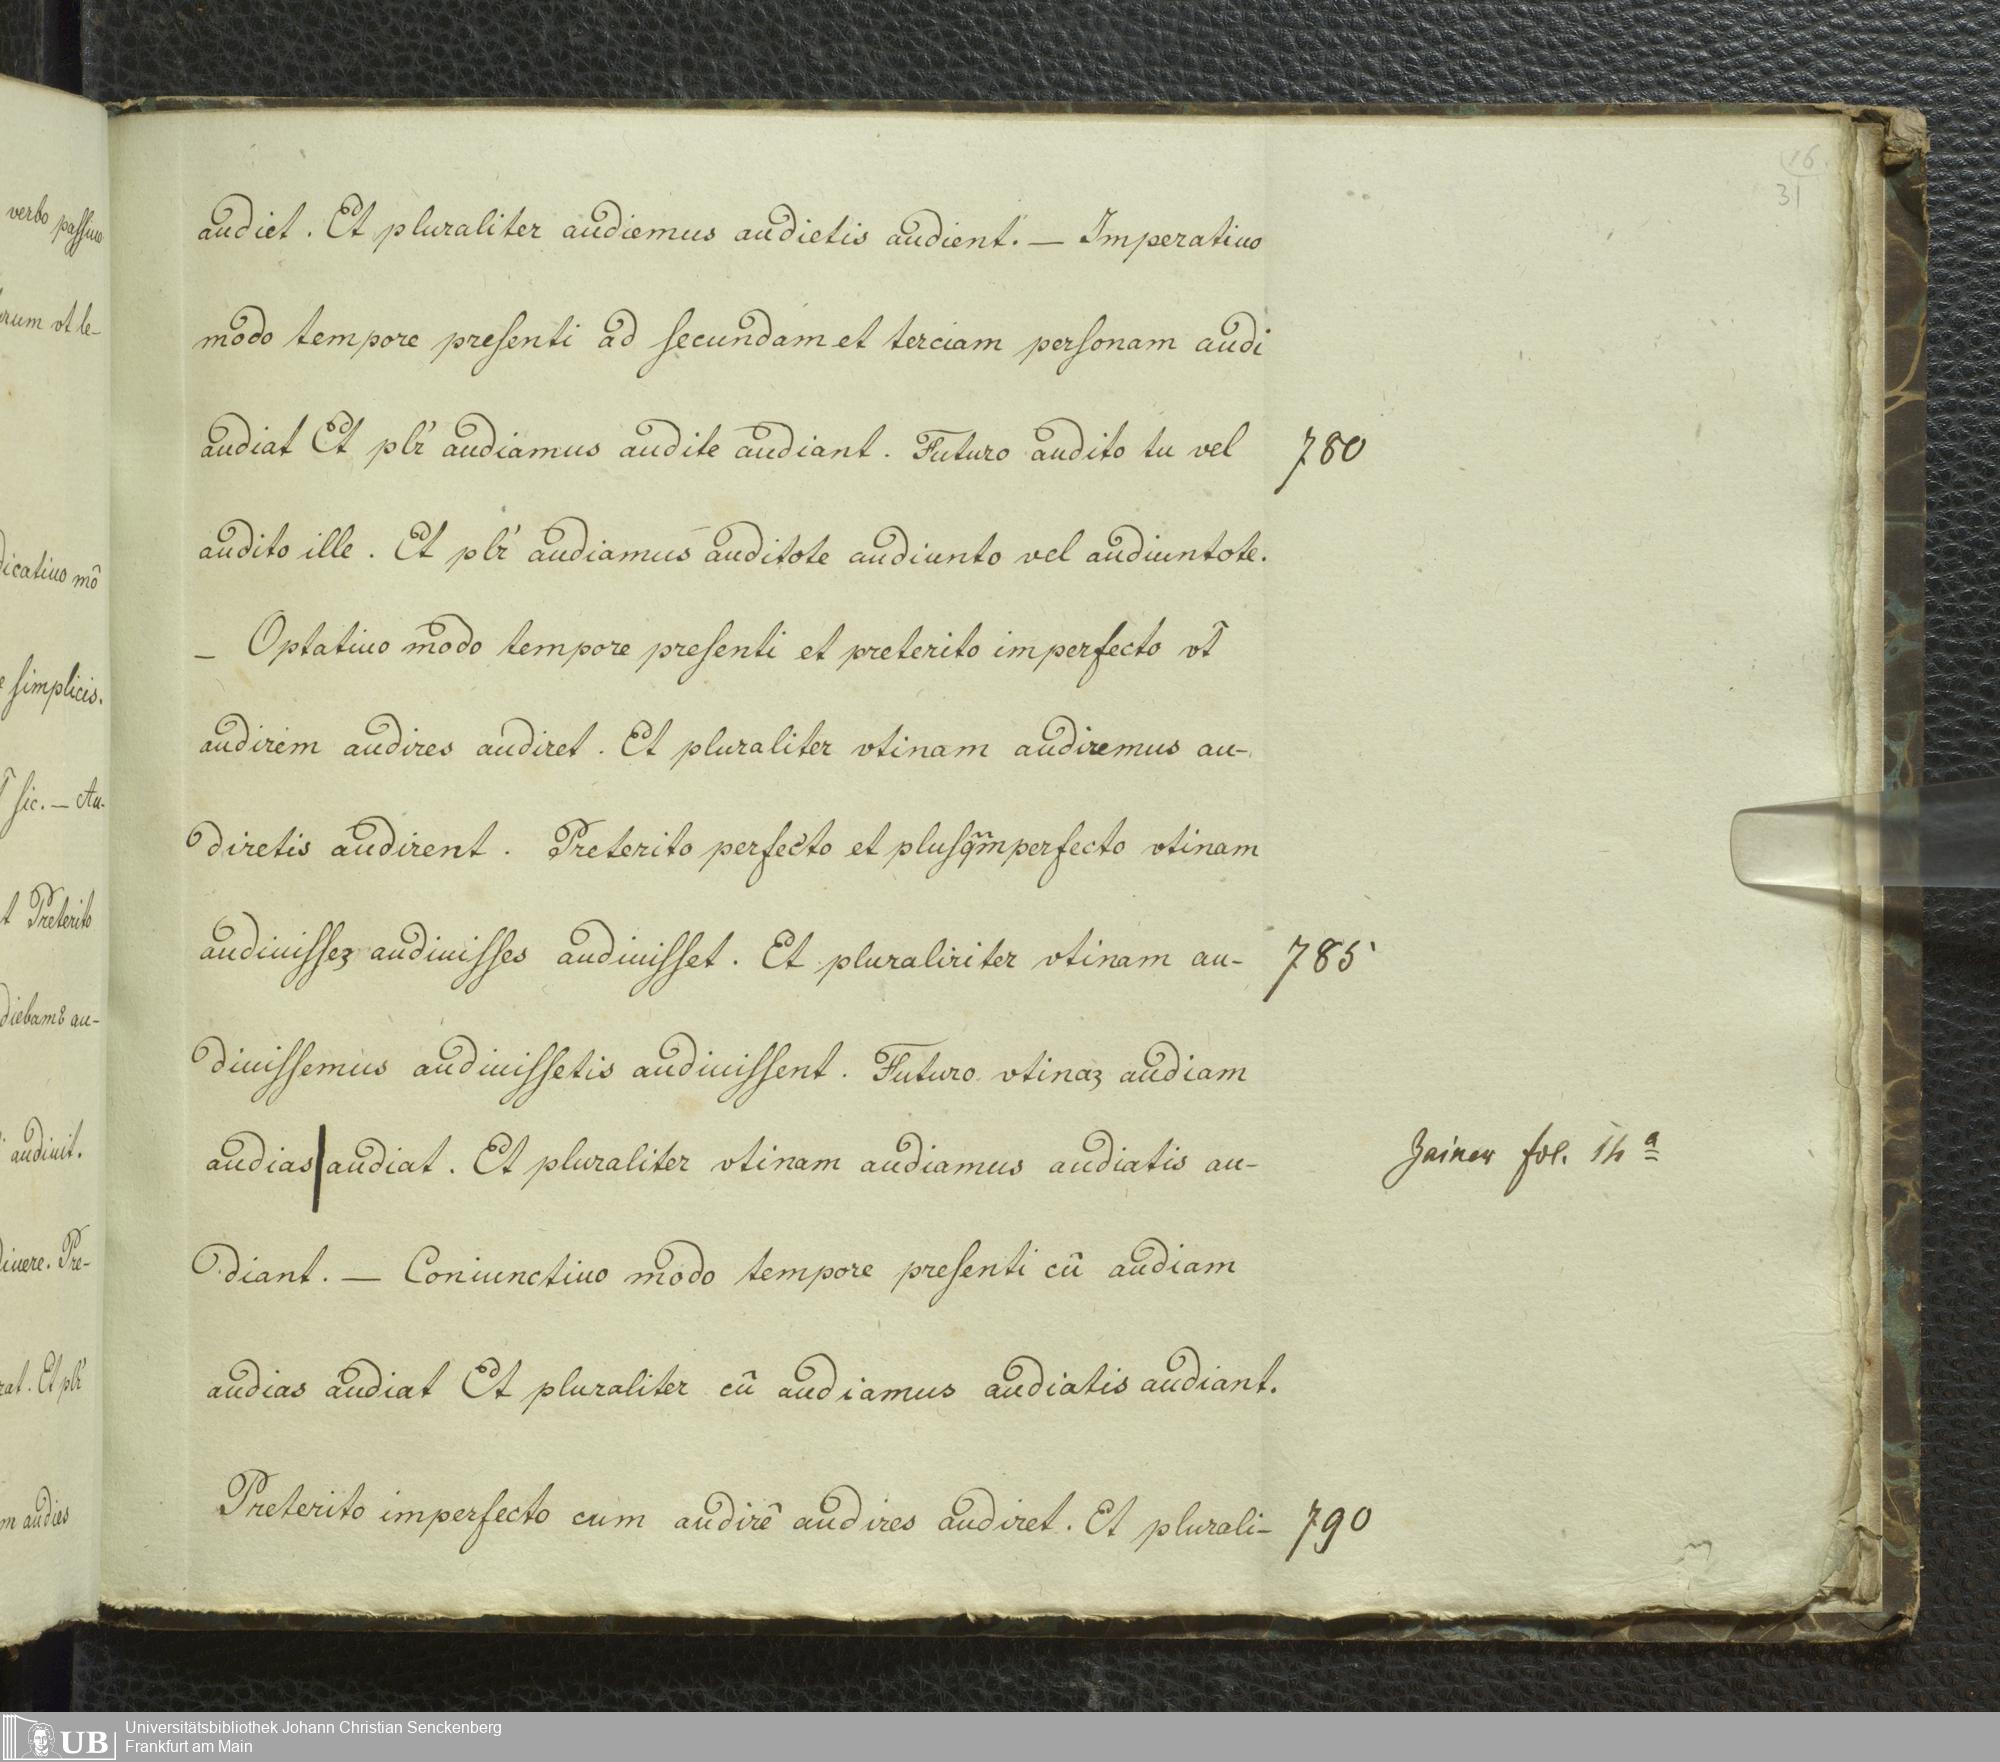 verbo passiuo
rum vt le-
dicatiuo mō
simplicis.
sic. — Au-
t Preterito
diebamꝰ au-
audiuit.
diuere. Pre-
rat. Et plr̄
m audies
16.
31
audiet. Et pluraliter audiemus audietis audient. — Imperatiuo
modo tempore presenti ad secundam et terciam personam audi
audiat Et plr̄ audiamus audite audiant. Futuro audito tu vel 780
audito ille. Et plr̄ audiamus auditote audiunto vel audiuntote.
— Optatiuo modo tempore presenti et preterito imperfecto vt̄
audirem audires audiret. Et pluraliter vtinam audiremus au-
diretis audirent. Preterito perfecto et plusq̄m̄perfecto vtinam
audiuisseꝫ audiuisses audiuisset. Et pluraliriter vtinam au- 785
diuissemus audiuissetis audiuissent. Futuro vtinaꝫ audiam
audias|audiat. Et pluraliter vtinam audiamus audiatis au- Zainer fol. 14ª
diant. — Coniunctiuo modo tempore presenti cū audiam
audias audiat Et pluraliter cū audiamus audiatis audiant.
Preterito imperfecto cum audirē audires audiret. Et plurali- 790
UB Universitätsbibliothek Johann Christian Senckenberg
Frankfurt am Main